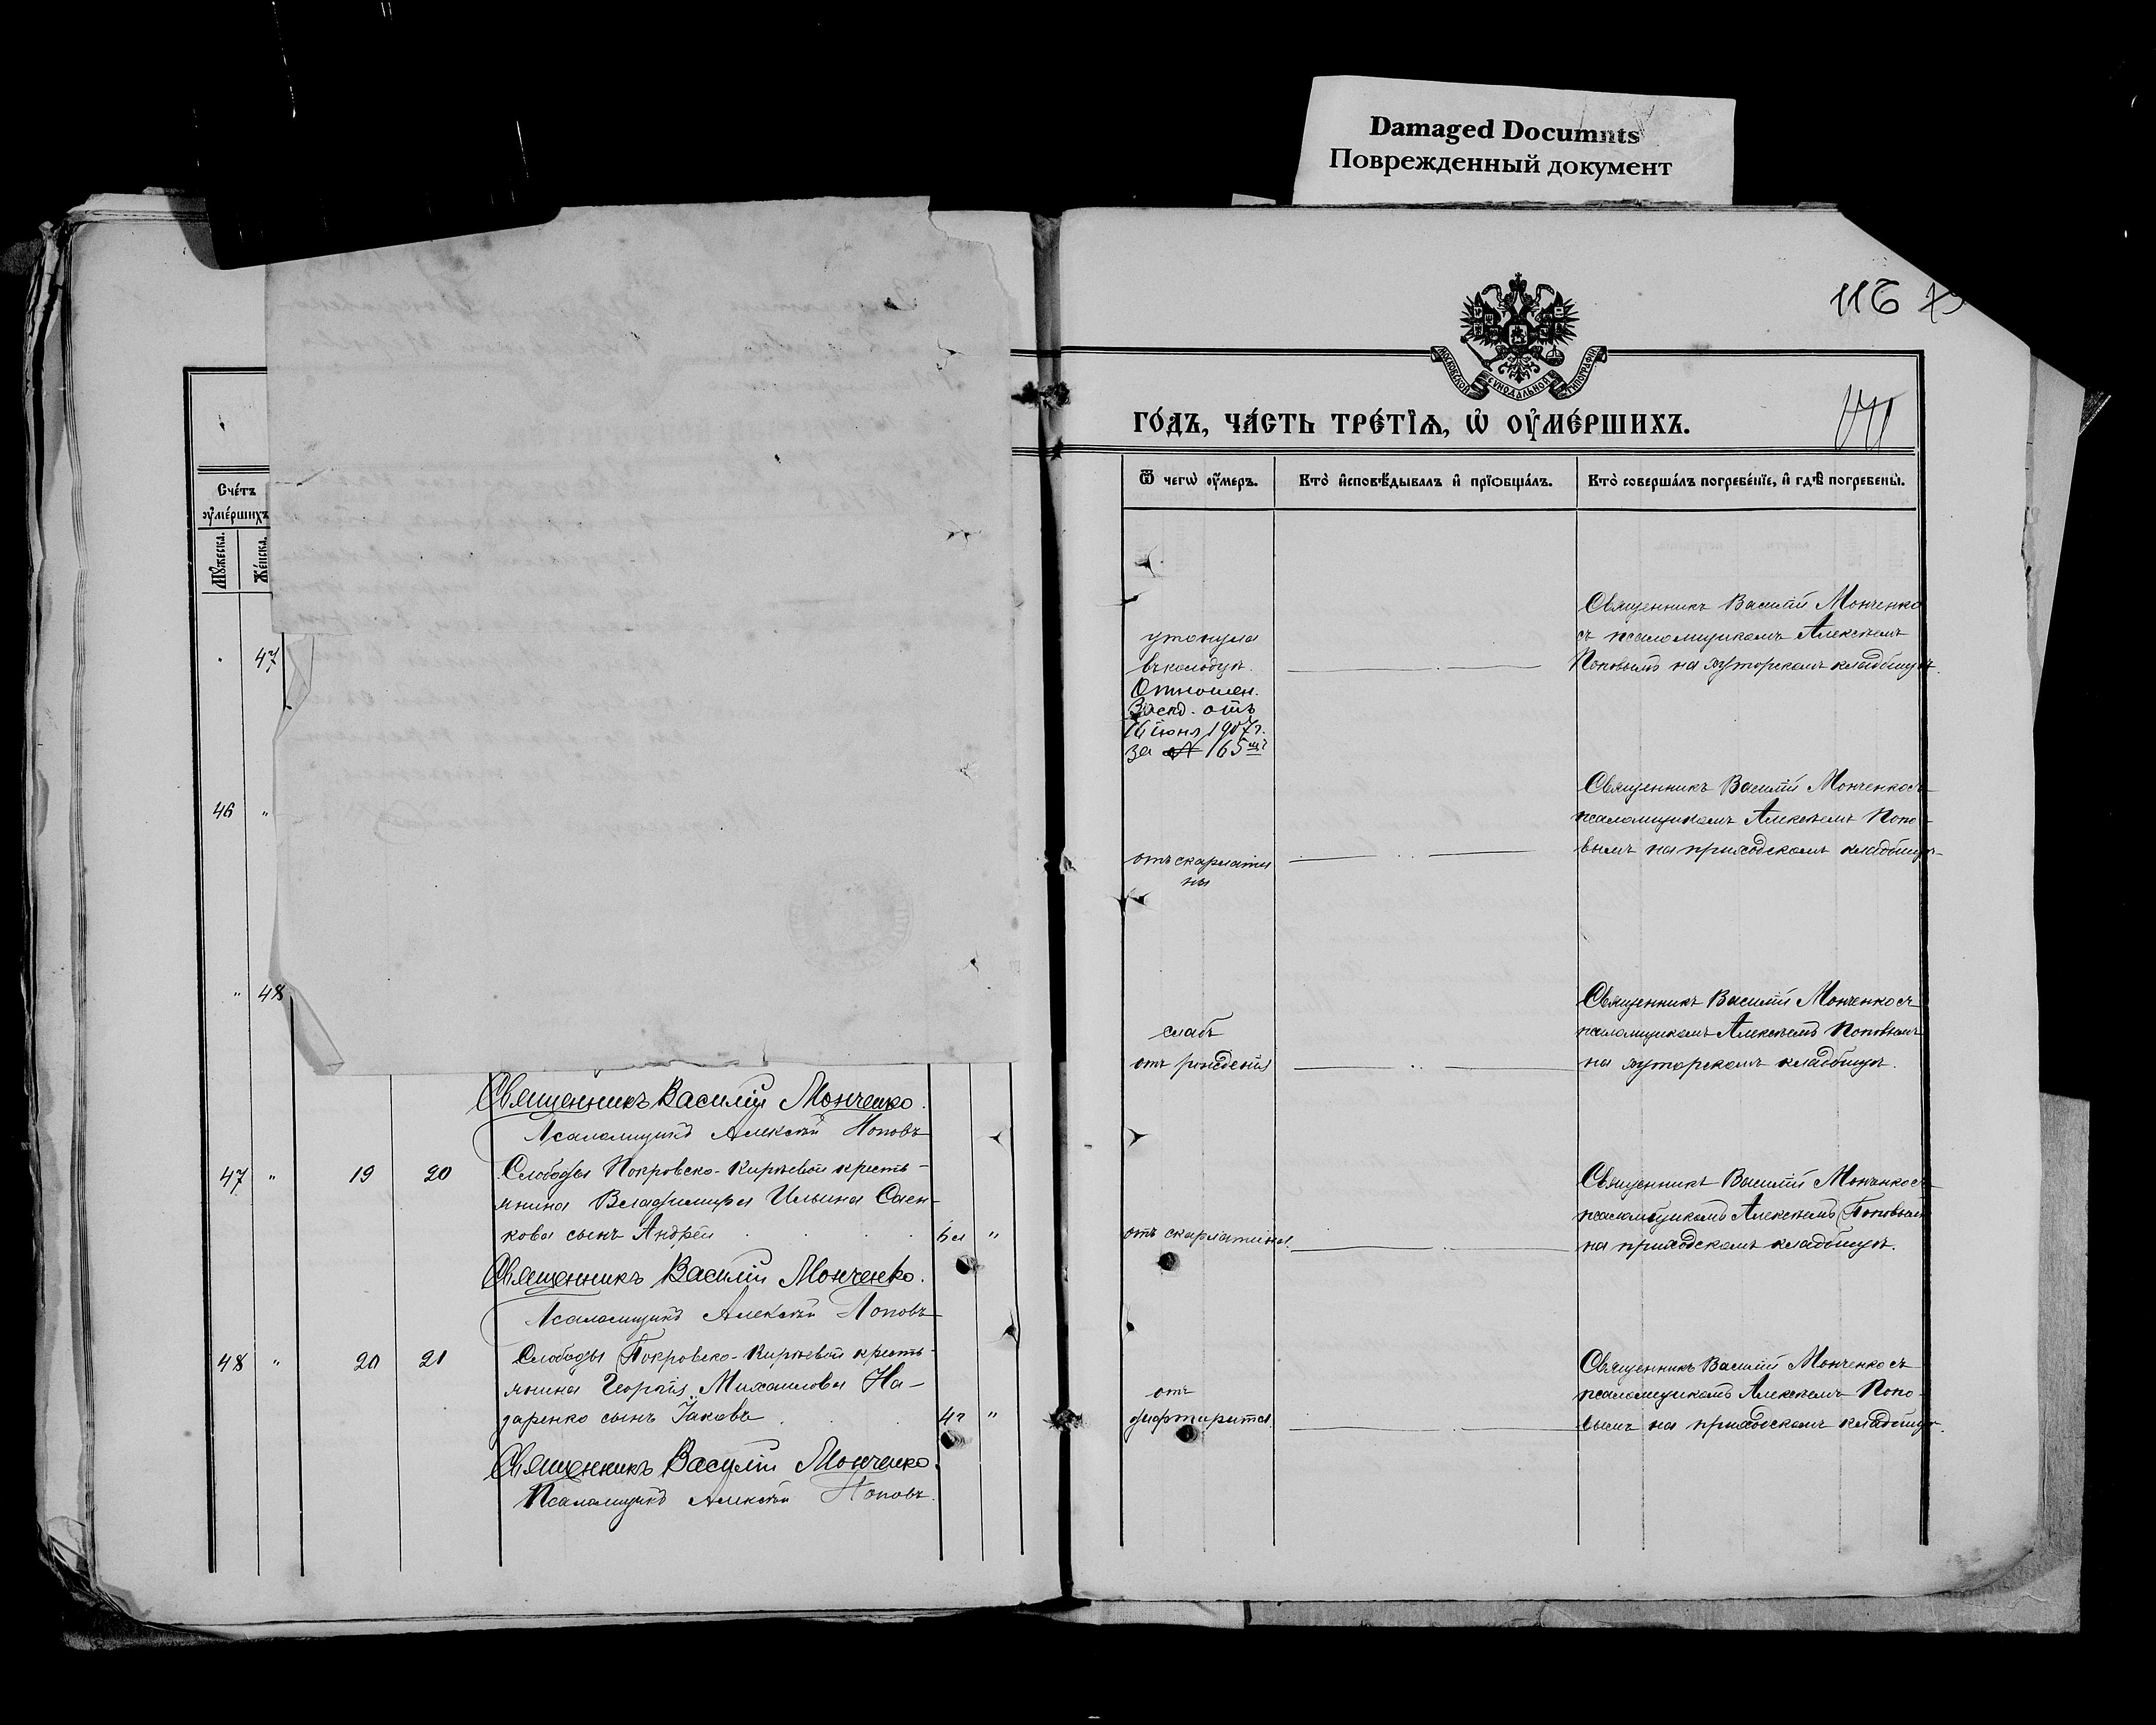 Damaged Documnts
Поврежденный документ
116
МОСКОВСКОЙ СУНОДАЛЬНОЙ ТИПОГРАФІИ
ГО́ДЪ, ЧА́СТЬ ТРЕ́ТЇѦ, Ѡ҆ ОУ҆МЕ́РШИХЪ.
Счétъ
оу҆ме́ршихъ
Мꙋ́жеска.
Же́нска.
Ѿ чегѡ̀ оу҆́меръ.
Кто̀ и҆сповѣ́дывалъ и҆ прїѻбща́лъ.
Кто̀ соверша́лъ погребе́нїе, и҆ гдѣ̀ погребены̀.
47
утонула
въ колодцѣ.
Отношен.
Засѣд. отъ
16 іюня 1907 г.
за № 165
Священникъ Василій Монченко
съ псаломщикомъ Алексѣемъ
Поповымъ на хуторскомъ кладбищѣ.
46 "
отъ скарлати
ны
Священникъ Василій Монченко съ
псаломщикомъ Алексѣемъ Попо-
вымъ на приходскомъ кладбищѣ
" 48
слабъ
отъ рожденія
Священникъ Василій Монченко съ
псаломщикомъ Алексѣемъ Поповымъ
на хуторскомъ кладбищѣ.
Священникъ Василій Монченко.
Псаломщикъ Алексѣй Поповъ
47 " 19 20
Слободы Покровско-Кирѣевой кресть-
янина Владимира Ильина Саен-
кова сынъ Андрей
"
отъ скарлатины.
Священникъ Василій Монченко съ
псаломщикомъ Алексѣемъ Поповымъ
на приходскомъ кладбищѣ.
Священникъ Василій Монченко.
Псаломщикъ Алексѣй Поповъ
48 " 20 21
Слободы Покровско-Кирѣевой кресть-
янина Георгія Михаилова На-
заренко сынъ Іаковъ
4г "
отъ
дифтирита.
Священникъ Василій Монченко съ
псаломщикомъ Алексѣемъ Попо-
вымъ на приходскомъ кладбищѣ.
Священникъ Василій Монченко.
Псаломщикъ Алексѣй Поповъ.